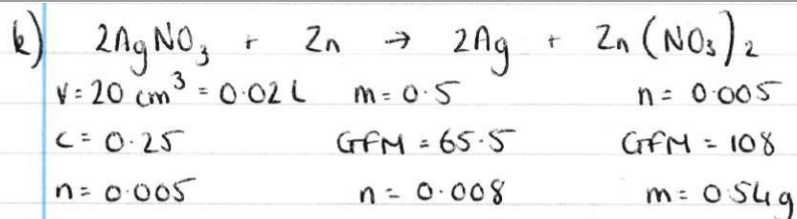 k) 2AgNO₃ + Zn → 2Ag + Zn(NO₃)₂
V = 20 cm³ = 0.02 L m = 0.5 n = 0.005
c = 0.25 GFM = 65.5 GFM = 108
n = 0.005 n = 0.008 m = 0.54g